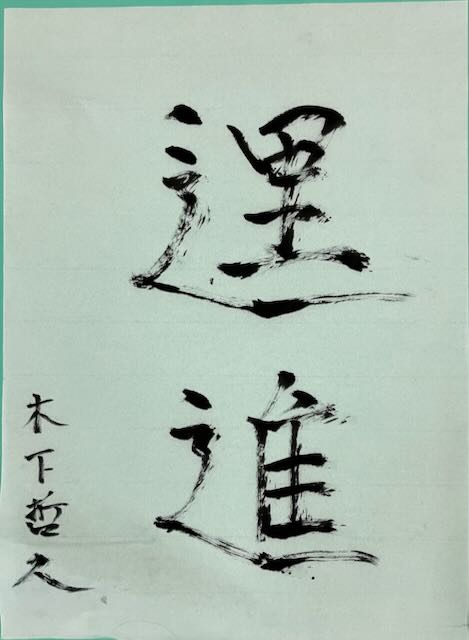 進
木下哲久